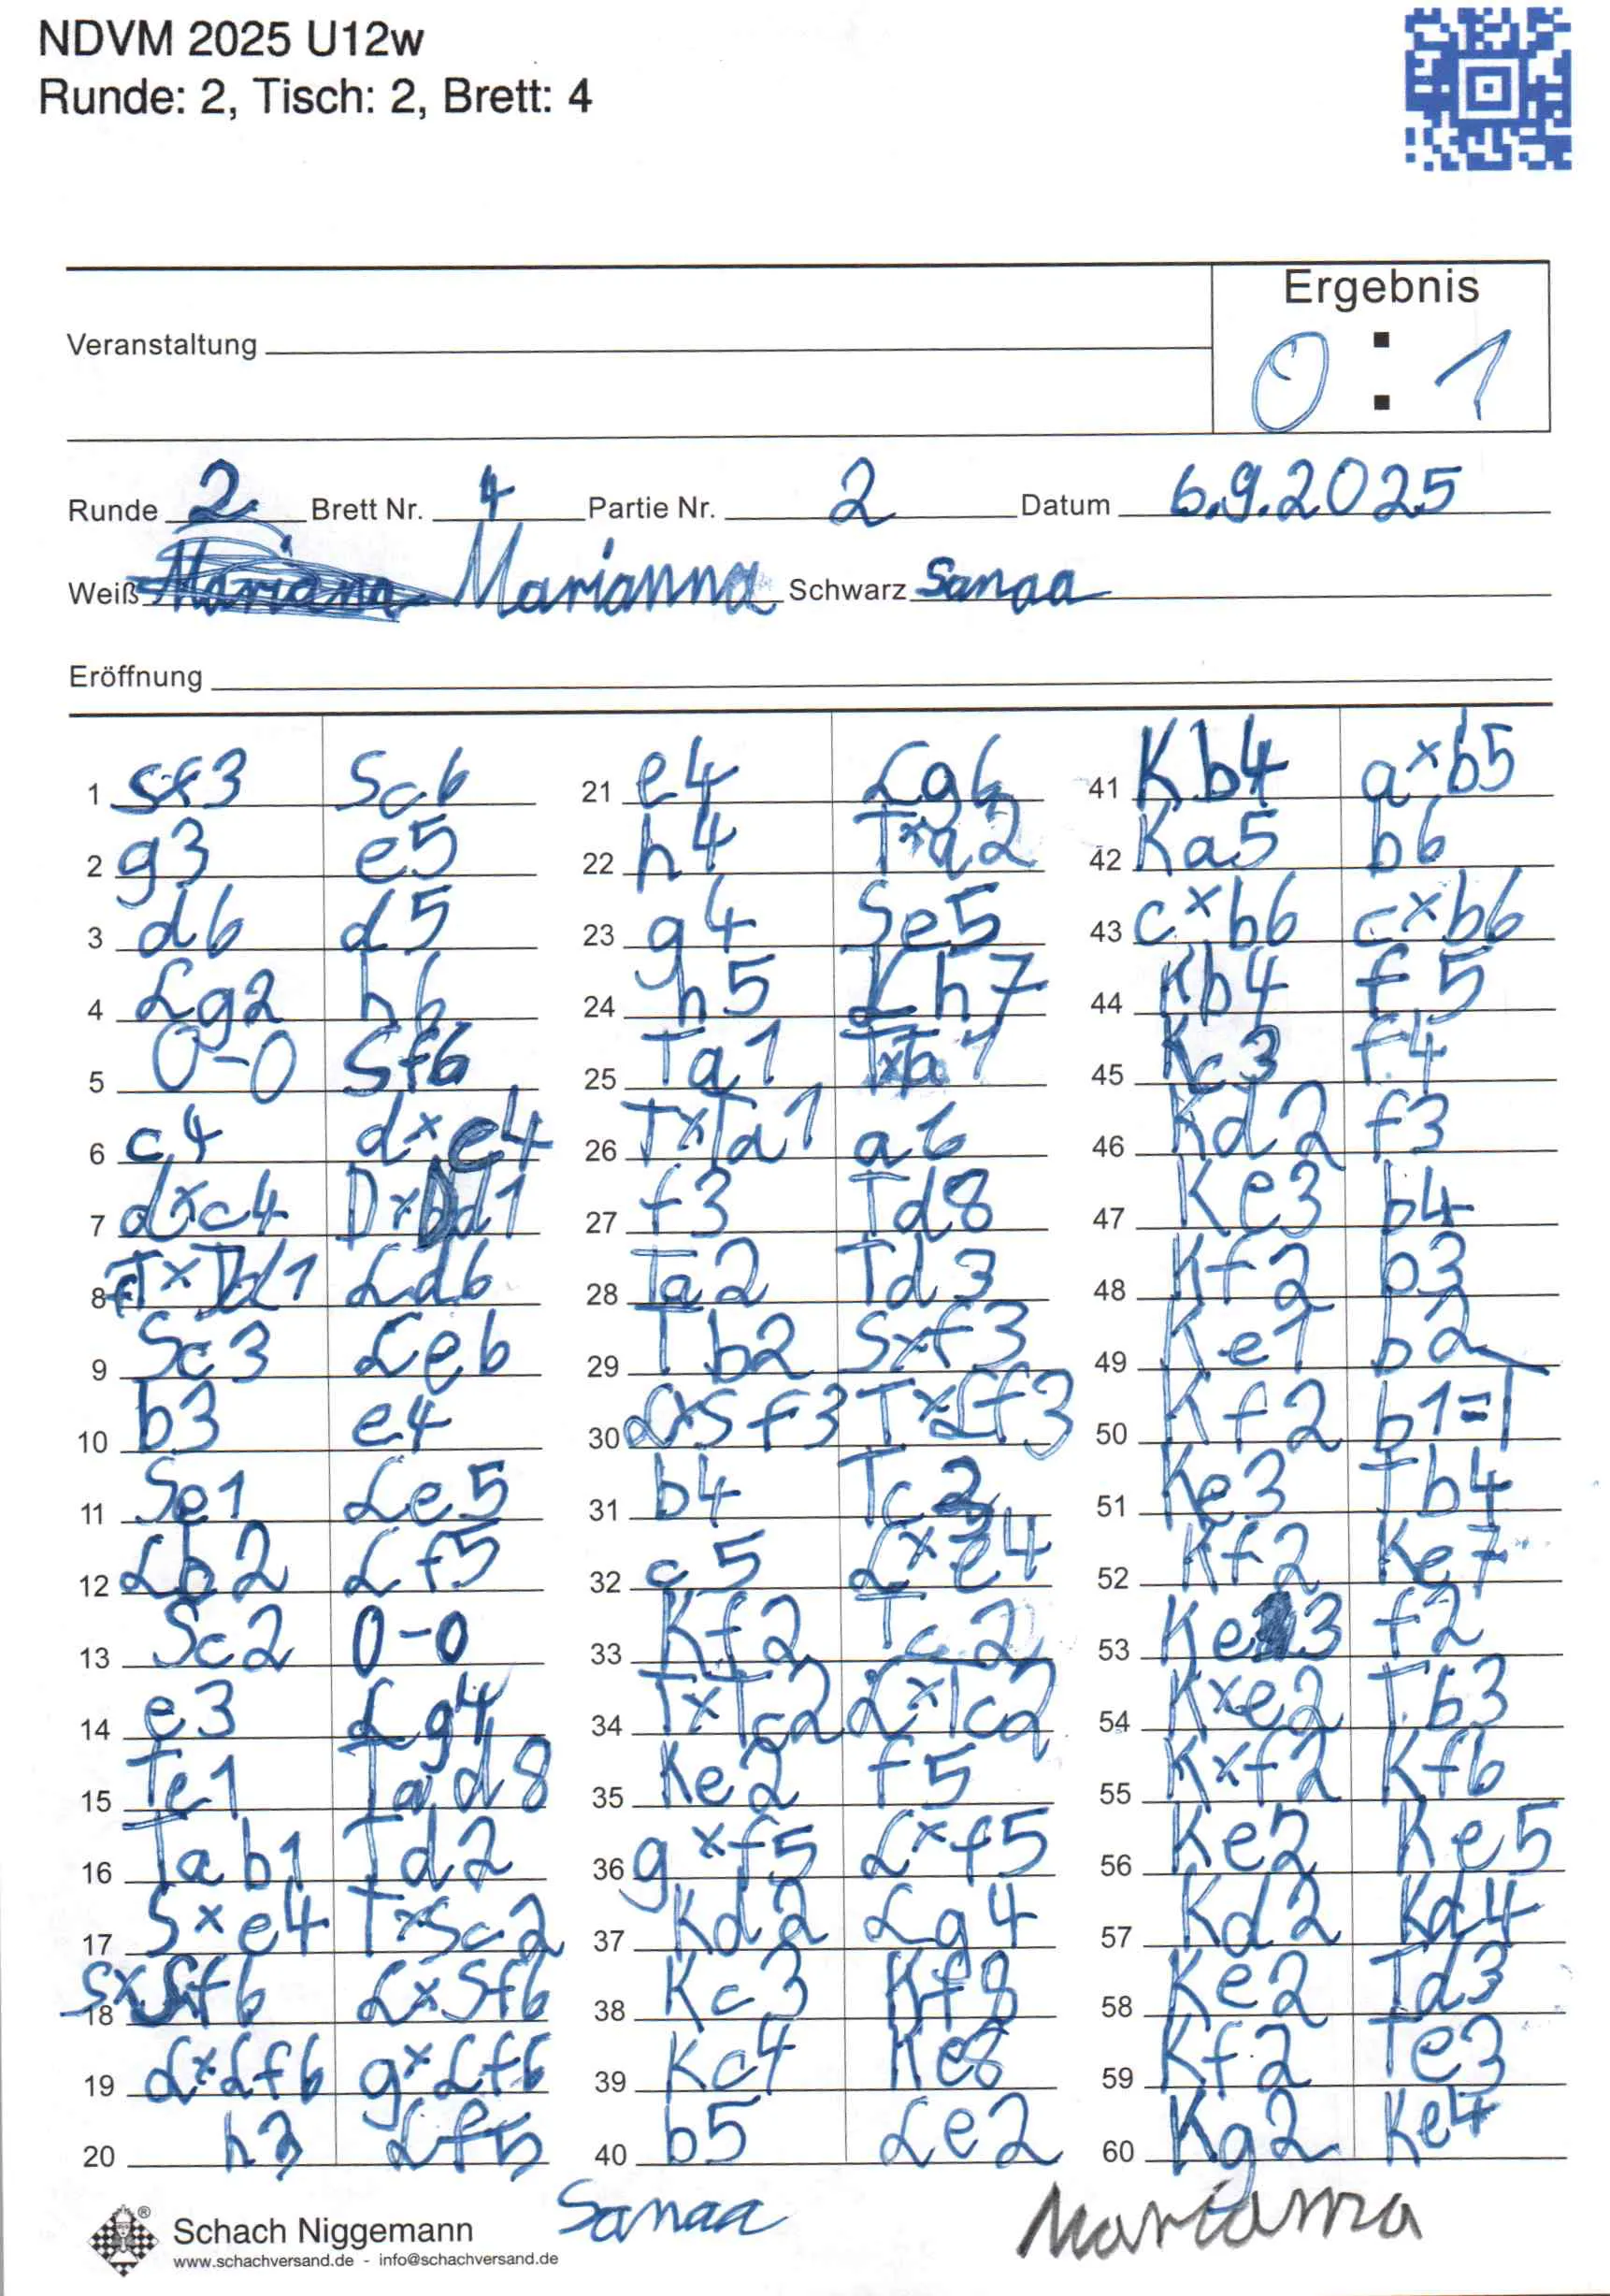 NDVM 2025 U12w
Runde: 2, Tisch: 2, Brett: 4
Ergebnis
Veranstaltung
0 : 1
Runde 2 Brett Nr. 4 Partie Nr. 2 Datum 6.9.2025
Weiß Mariana Marianna Schwarz Sanaa
Eröffnung
1 Sf3 Sc6
2 g3 e5
3 d6 d5
4 Lg2 h6
5 0-0 Sf6
6 c4 d×e4
7 d×c4 D×Dd1
8 T×Dd1 Ld6
9 Sc3 Le6
10 b3 e4
11 Se1 Le5
12 Lb2 Lf5
13 Sc2 0-0
14 e3 Lg4
15 Te1 Tad8
16 Tab1 Td2
17 S×e4 T×Sc2
18 S×Sf6 L×Sf6
19 L×Lf6 g×Lf6
20 h3 Lf5
21 e4 Lg6
22 h4 T×a2
23 g4 Se5
24 h5 Lh7
25 Ta1 T×Ta1
26 T×Ta1 a6
27 f3 Td8
28 Ta2 Td3
29 Tb2 S×f3
30 L×Sf3 T×Lf3
31 b4 Tc3
32 c5 L×e4
33 Kf2 Tc2
34 T×Tc2 L×Tc2
35 Ke2 f5
36 g×f5 L×f5
37 Kd2 Lg4
38 Kc3 Kf8
39 Kc4 Ke8
40 b5 Le2
41 Kb4 a×b5
42 Ka5 b6
43 c×b6 c×b6
44 Kb4 f5
45 Kc3 f4
46 Kd2 f3
47 Ke3 b4
48 Kf2 b3
49 Ke1 b2
50 Kf2 b1=T
51 Ke3 Tb4
52 Kf2 Ke7
53 Ke3 f2
54 K×e2 Tb3
55 K×f2 Kf6
56 Ke2 Ke5
57 Kd2 Kd4
58 Ke2 Td3
59 Kf2 Te3
60 Kg2 Ke4
Sanaa Marianna
Schach Niggemann
www.schachversand.de - info@schachversand.de